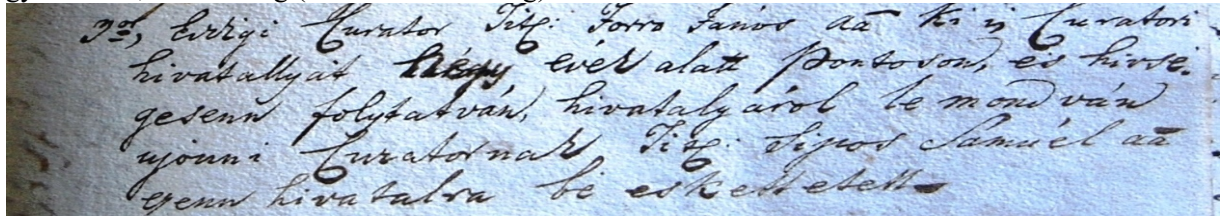 3or, Eddigi Curator Titz: Forro János aã ki is Curatori
hivatallyát négy évek alatt pontoson, és hivse-
gesenn folytatván, hivatalyárol le mondván
ujonni Curatornak Titz: Sipos Sámuél aã
ezenn hivatalra bé eskettetett